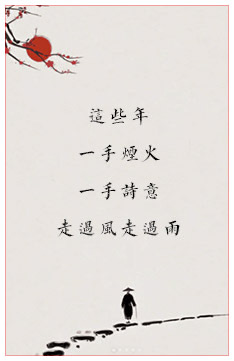 這些年
一手煙火
一手詩意
走過風走過雨